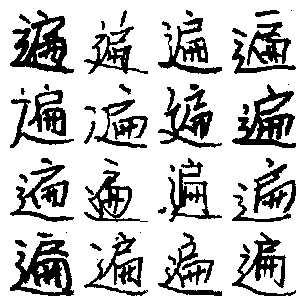 遍遍遍遍
遍遍遍遍
遍遍遍遍
遍遍遍遍